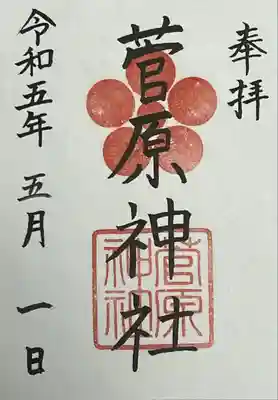 奉拝
菅原神社
菅原
神社
令和五年 五月 一日